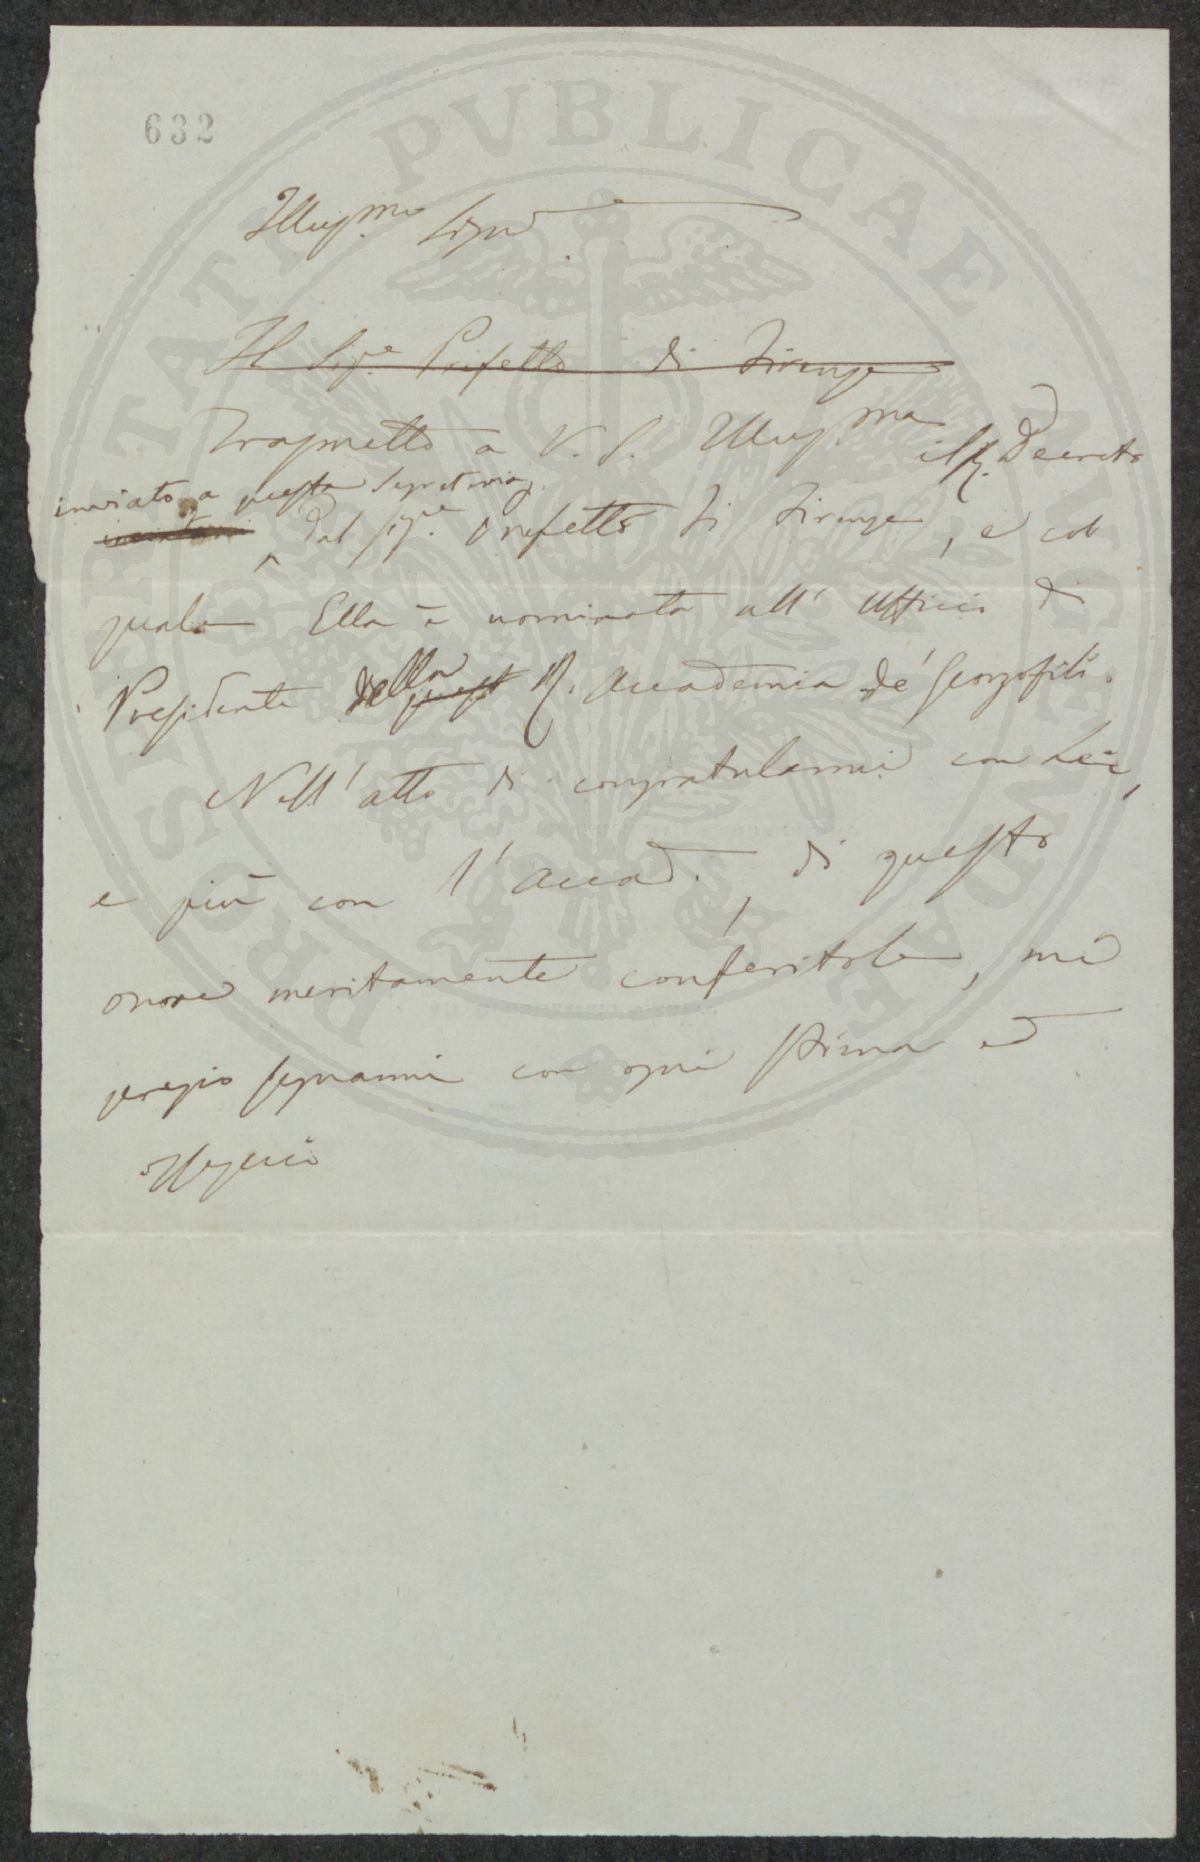 632
PROSPERITATI PVBLICAE AVGENDAE
Illus.mo Sign.
Il Sig.e Prefetto di Firenze
Trasmetto a V. S. Illus.ma il R. Decreto
inviato a questa Segreteria
dal Sig.e Prefetto di Firenze, e col
quale Ella è nominata all' Ufficio di
Presidente della R. Accademia de' Georgofili.
Nell' atto di congratularmi con Lei,
e più con l' Accad., di questo
onore meritamente conferitole, mi
pregio segnarmi con ogni stima ed
ossequio